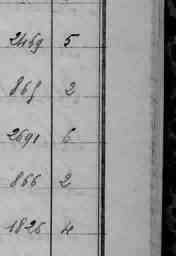 2469 5
865 2
2691 6
866 2
1826 4